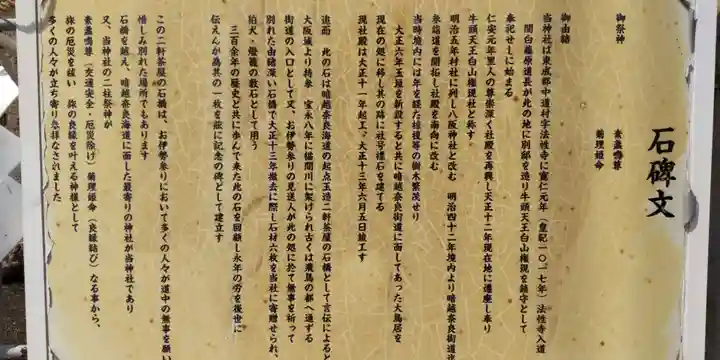 石碑文
御祭神
素盞嗚尊
菊理姫命
御由緒
当神社は東成郡中道村字法性寺に寛仁元年（皇紀一〇一七年）法性寺入道
関白藤原道長が此の地に別邸を造り牛頭天王白山権現を鎮守として
奉祀せしに始まる
仁安元年里人の尊崇深く社殿を再興し天正十二年現在地に遷座し奉り
牛頭天王白山権現社と称す
明治五年村社に列し八阪神社と改む 明治四十二年境内より暗越奈良街道迄
参詣道を開拓し社殿を南向に改む
当時境内には年を経た椋榎等の樹木繁茂せり
大正六年玉垣を新設すると共に暗越奈良街道に面してあった大鳥居を
現在の処に移し其の跡に社号標石を建てる
現社殿は大正十一年起工、大正十三年六月五日竣工す
追而 此の石は暗越奈良海道の起点玉造二軒茶屋の石橋として言伝によると
大阪城より持参 宝永八年に猫間川に架けられ古くは飛鳥の都へ通ずる
街道の入口として又、お伊勢参りの見送人が此の処に於て無事を祈って
別れた由緒深い石橋で大正十三年撤去に際し石材六枚を当社に寄贈せられ、
狛犬・燈籠の敷石として用う
三百余年の歴史と共に歩んで来た此の石を回顧し永年の労を後世に
伝えんが為其の一枚を茲に記念の碑として建立す
この二軒茶屋の石橋は、お伊勢参りにおいて多くの人々が道中の無事を願い
惜しみ別れた場所でもあります
石橋を越え、暗越奈良海道に面した最寄りの神社が当神社であり
又、当神社の二柱祭神が
素盞嗚尊（交通安全・厄災除け）菊理姫命（良縁結び）なる事から、
旅の厄災を祓い 旅の良縁を叶える神様として
多くの人々が立ち寄り参拝なされました